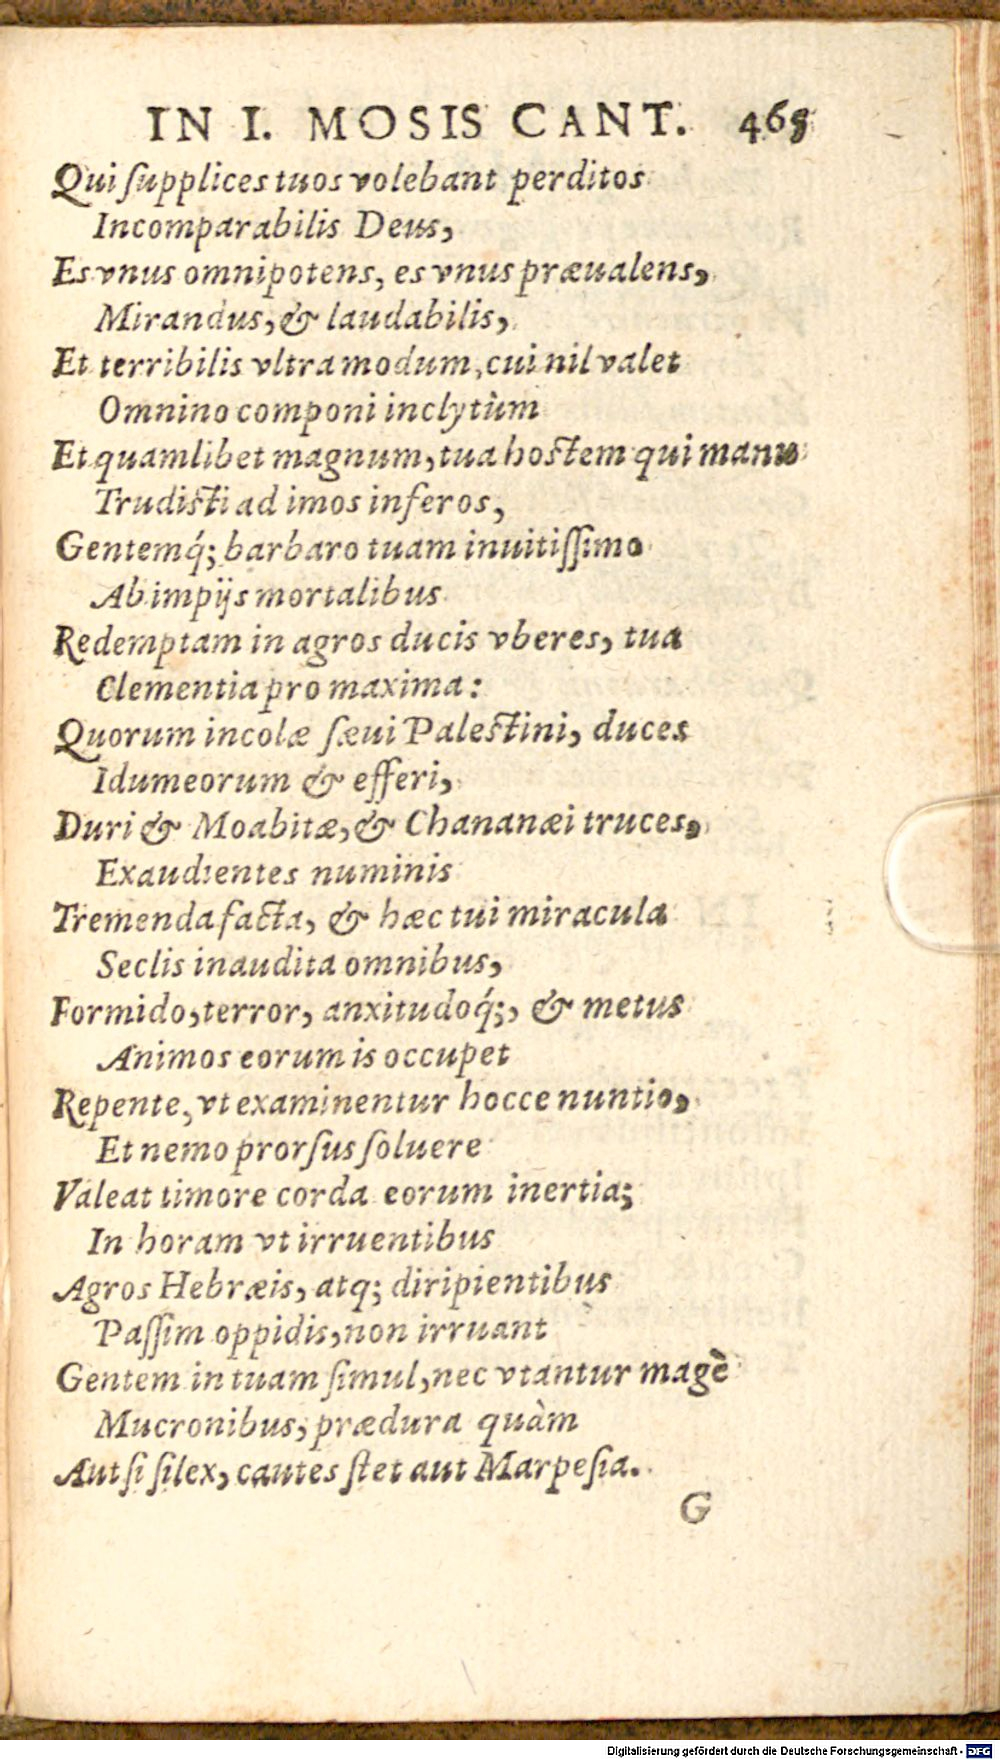 IN I. MOSIS CANT. 465
Qui ſupplices tuos volebant perditos
Incomparabilis Deus,
Es vnus omnipotens, es vnus præualens,
Mirandus, & laudabilis,
Et terribilis vltra modum, cui nil valet
Omnino componi inclytùm
Et quamlibet magnum, tua hoſtem qui manu
Trudiſti ad imos inferos,
Gentemq́; barbaro tuam inuitiſſimo
Ab impijs mortalibus
Redemptam in agros ducis vberes, tua
Clementia pro maxima:
Quorum incolæ ſæui Paleſtini, duces
Idumeorum & efferi,
Duri & Moabitæ, & Chananæi truces,
Exaudientes numinis
Tremenda facta, & hæc tui miracula
Seclis inaudita omnibus,
Formido, terror, anxitudoq́;, & metus
Animos eorum is occupet
Repente, vt examinentur hocce nuntio,
Et nemo prorſus ſoluere
Valeat timore corda eorum inertia;
In horam vt irruentibus
Agros Hebræis, atq; diripientibus
Paſſim oppidis, non irruant
Gentem in tuam ſimul, nec vtantur magè
Mucronibus, prædura quàm
Aut ſi ſilex, cautes ſtet aut Marpeſia.
G
Digitalisierung gefördert durch die Deutsche Forschungsgemeinschaft - DFG